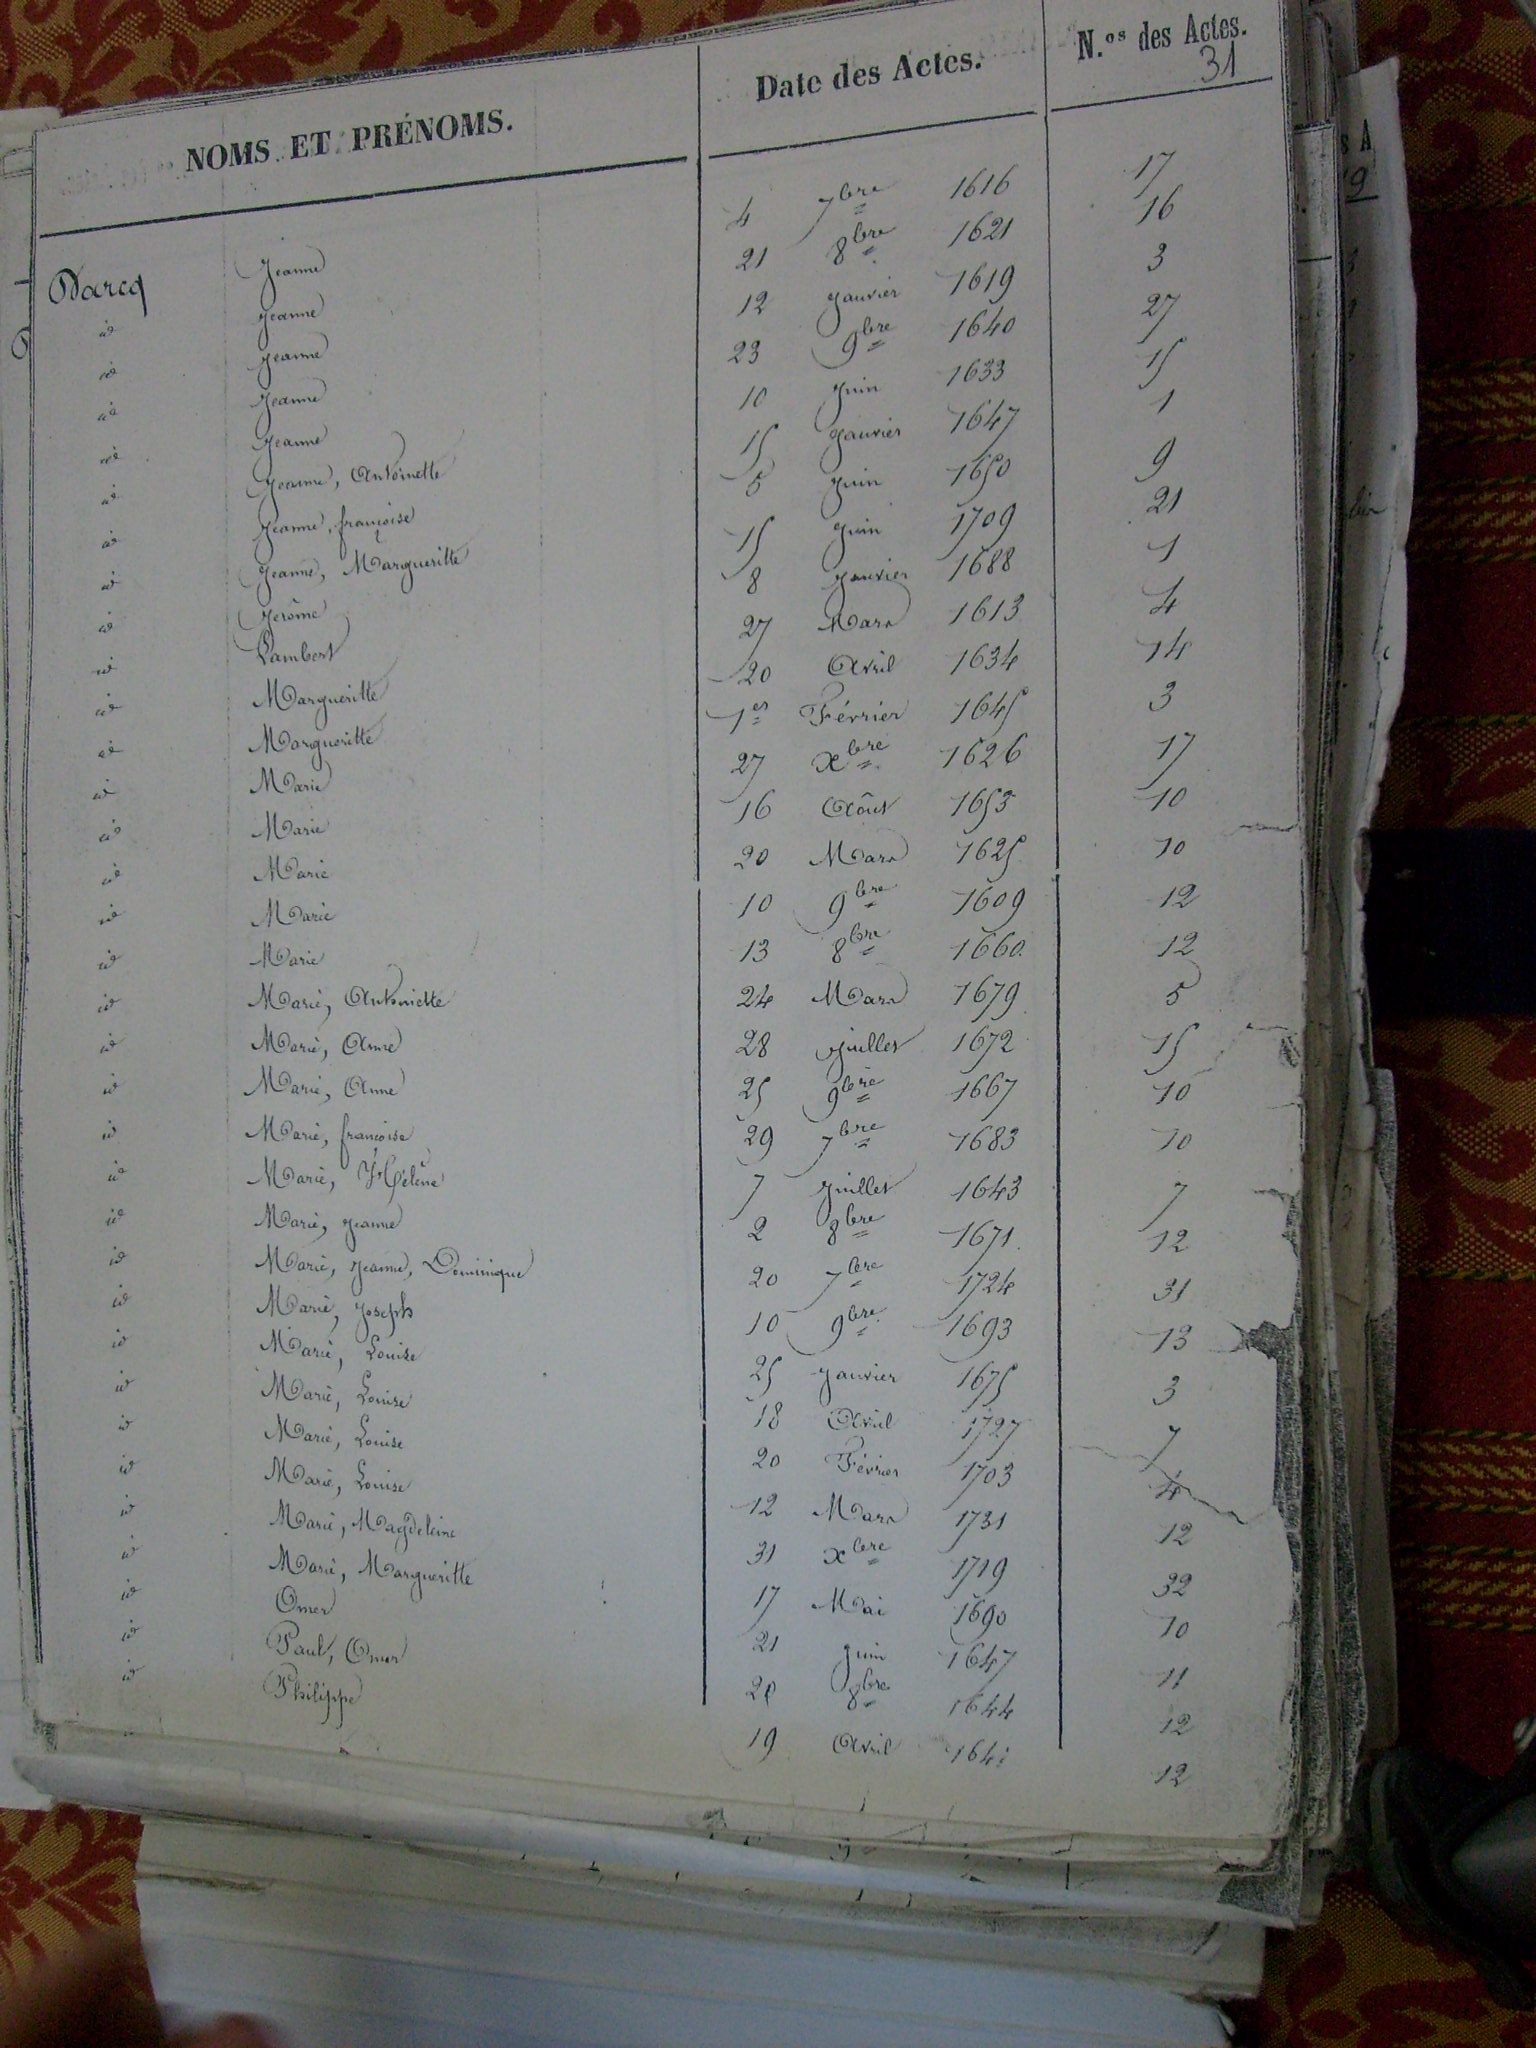 NOMS ET PRÉNOMS. Date des Actes. N.os des Actes.
31
Darcq Jeanne 4 7bre 1616 17
id Jeanne 21 8bre 1621 16
id Jeanne 12 Janvier 1619 3
id Jeanne 23 9bre 1640 27
id Jeanne 10 Juin 1633 15
id Jeanne, Antoinette 15 Janvier 1647 1
id Jeanne, françoise 5 Juin 1650 9
id Jeanne, Margueritte 15 Juin 1709 21
id Jerôme 8 Janvier 1688 1
id Lambert 27 Mars 1613 4
id Margueritte 20 Avril 1634 14
id Margueritte 1er Février 1645 3
id Marie 27 xbre 1626 17
id Marie 16 Août 1653 10
id Marie 20 Mars 1625 10
id Marie 10 9bre 1609 12
id Marie 13 8bre 1660 12
id Marie, Antoinette 24 Mars 1679 5
id Marie, Anne 28 Juillet 1672 15
id Marie, Anne 25 9bre 1667 10
id Marie, françoise 29 7bre 1683 10
id Marie, Hélène 7 Juillet 1643 7
id Marie, Jeanne 2 8bre 1671 12
id Marie, Jeanne, Dominique 20 7bre 1724 31
id Marie, Joseph 10 9bre 1693 13
id Marie, Louise 25 Janvier 1675 3
id Marie, Louise 18 Avril 1727 7
id Marie, Louise 20 Février 1703 4
id Marie, Louise 12 Mars 1731 12
id Marie, Magdeleine 31 xbre 1719 32
id Marie, Margueritte 17 Mai 1690 10
id Omer 21 Juin 1647 11
id Paul, Omer 8bre 1644 12
id Philippe 19 Avril 12